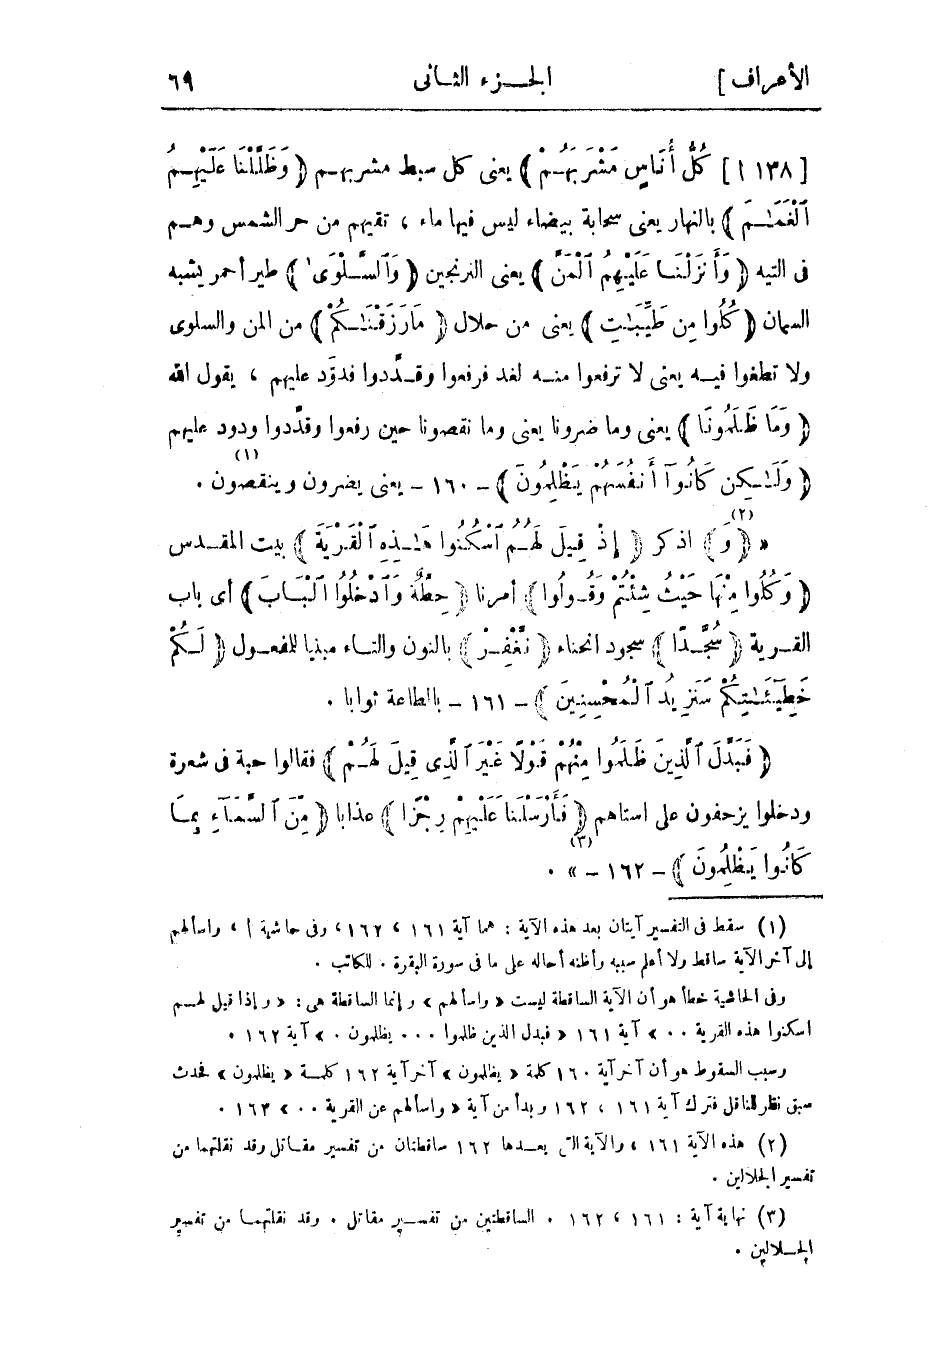 الأعراف ] الجـزء الثانى ٦٩
[ ١٣٨ أ ] كُلُّ أُنَاسٍ مَشْرَبَهُمْ ﴾ يعنى كل سبط مشربهم ﴿ وَظَلَّلْنَا عَلَيْهِمُ
ٱلْغَمَـٰمَ ﴾ بالنهار يعنى سحابة بيضاء ليس فيها ماء ، تقيهم من حر الشمس وهم
فى التيه ﴿ وَأَنزَلْنَا عَلَيْهِمُ ٱلْمَنَّ ﴾ يعنى الترنجين ﴿ وَٱلسَّلْوَىٰ ﴾ طير أحمر يشبه
السمان ﴿ كُلُوا مِن طَيِّبَـٰتِ ﴾ يعنى من حلال ﴿ مَارَزَقْنَـٰكُمْ ﴾ من المن والسلوى
ولا تطغوا فيه يعنى لا ترفعوا منه لغد فرفعوا وقدَّدوا فدوَّد عليهم ، يقول الله
﴿ وَمَا ظَلَمُونَا ﴾ يعنى وما ضرونا يعنى وما نقصونا حين رفعوا وقدَّدوا ودود عليهم
﴿ وَلَـٰكِن كَانُوٓا أَنفُسَهُمْ يَظْلِمُونَ ﴾ – ١٦٠ – يعنى يضرون وينقصون (١) .
« ﴿ وَ ﴾ (٢) اذكر ﴿ إِذْ قِيلَ لَهُمُ ٱسْكُنُوا هَـٰذِهِ ٱلْقَرْيَةَ ﴾ بيت المقدس
﴿ وَكُلُوا مِنْهَا حَيْثُ شِئْتُمْ وَقُولُوا ﴾ أمرنا ﴿ حِطَّةٌ وَٱدْخُلُوا ٱلْبَابَ ﴾ أى باب
القرية ﴿ سُجَّدًا ﴾ سجود انحناء ﴿ نَّغْفِرْ ﴾ بالنون والتاء مبنيا للمفعول ﴿ لَكُمْ
خَطِيٓـَٔـٰتِكُمْ سَنَزِيدُ ٱلْمُحْسِنِينَ ﴾ – ١٦١ – بالطاعة ثوابا .
﴿ فَبَدَّلَ ٱلَّذِينَ ظَلَمُوا مِنْهُمْ قَوْلًا غَيْرَ ٱلَّذِى قِيلَ لَهُمْ ﴾ فقالوا حبة فى شعرة
ودخلوا يزحفون على استاهم ﴿ فَأَرْسَلْنَا عَلَيْهِمْ رِجْزًا ﴾ عذابا ﴿ مِّنَ ٱلسَّمَآءِ بِمَا
كَانُوا يَظْلِمُونَ ﴾ – ١٦٢ – (٣) » .
(١) سقط فى التفسير آيتان بعد هذه الآية : هما آية ١٦١ ، ١٦٢ ، وفى حاشية أ ، واسألهم
إلى آخر الآية ساقط ولا أعلم سببه وأظنه أحاله على ما فى سورة البقرة . للكاتب .
وفى الحاشية خطأ هو أن الآية الساقطة ليست « واسألهم » وإنما الساقطة هى : « وإذا قيل لهم
اسكنوا هذه القرية .. » آية ١٦١ « فبدل الذين ظلموا ... يظلمون . » آية ١٦٢ .
وسبب السقوط هو أن آخر آية ١٦٠ كلمة « يظلمون » آخر آية ١٦٢ كلمة « يظلمون » فحدث
سبق نظر للناقل فترك آية ١٦١ ، ١٦٢ وبدأ من آية « واسألهم عن القرية .. » ١٦٣ .
(٢) هذه الآية ١٦١ ، والآية التى بعدها ١٦٢ ساقطتان من تفسير مقاتل وقد نقلتهما من
تفسير الجلالين .
(٣) نهاية آية : ١٦١ ، ١٦٢ . الساقطتين من تفسير مقاتل . وقد نقلتهما من تفسير
الجلالين .